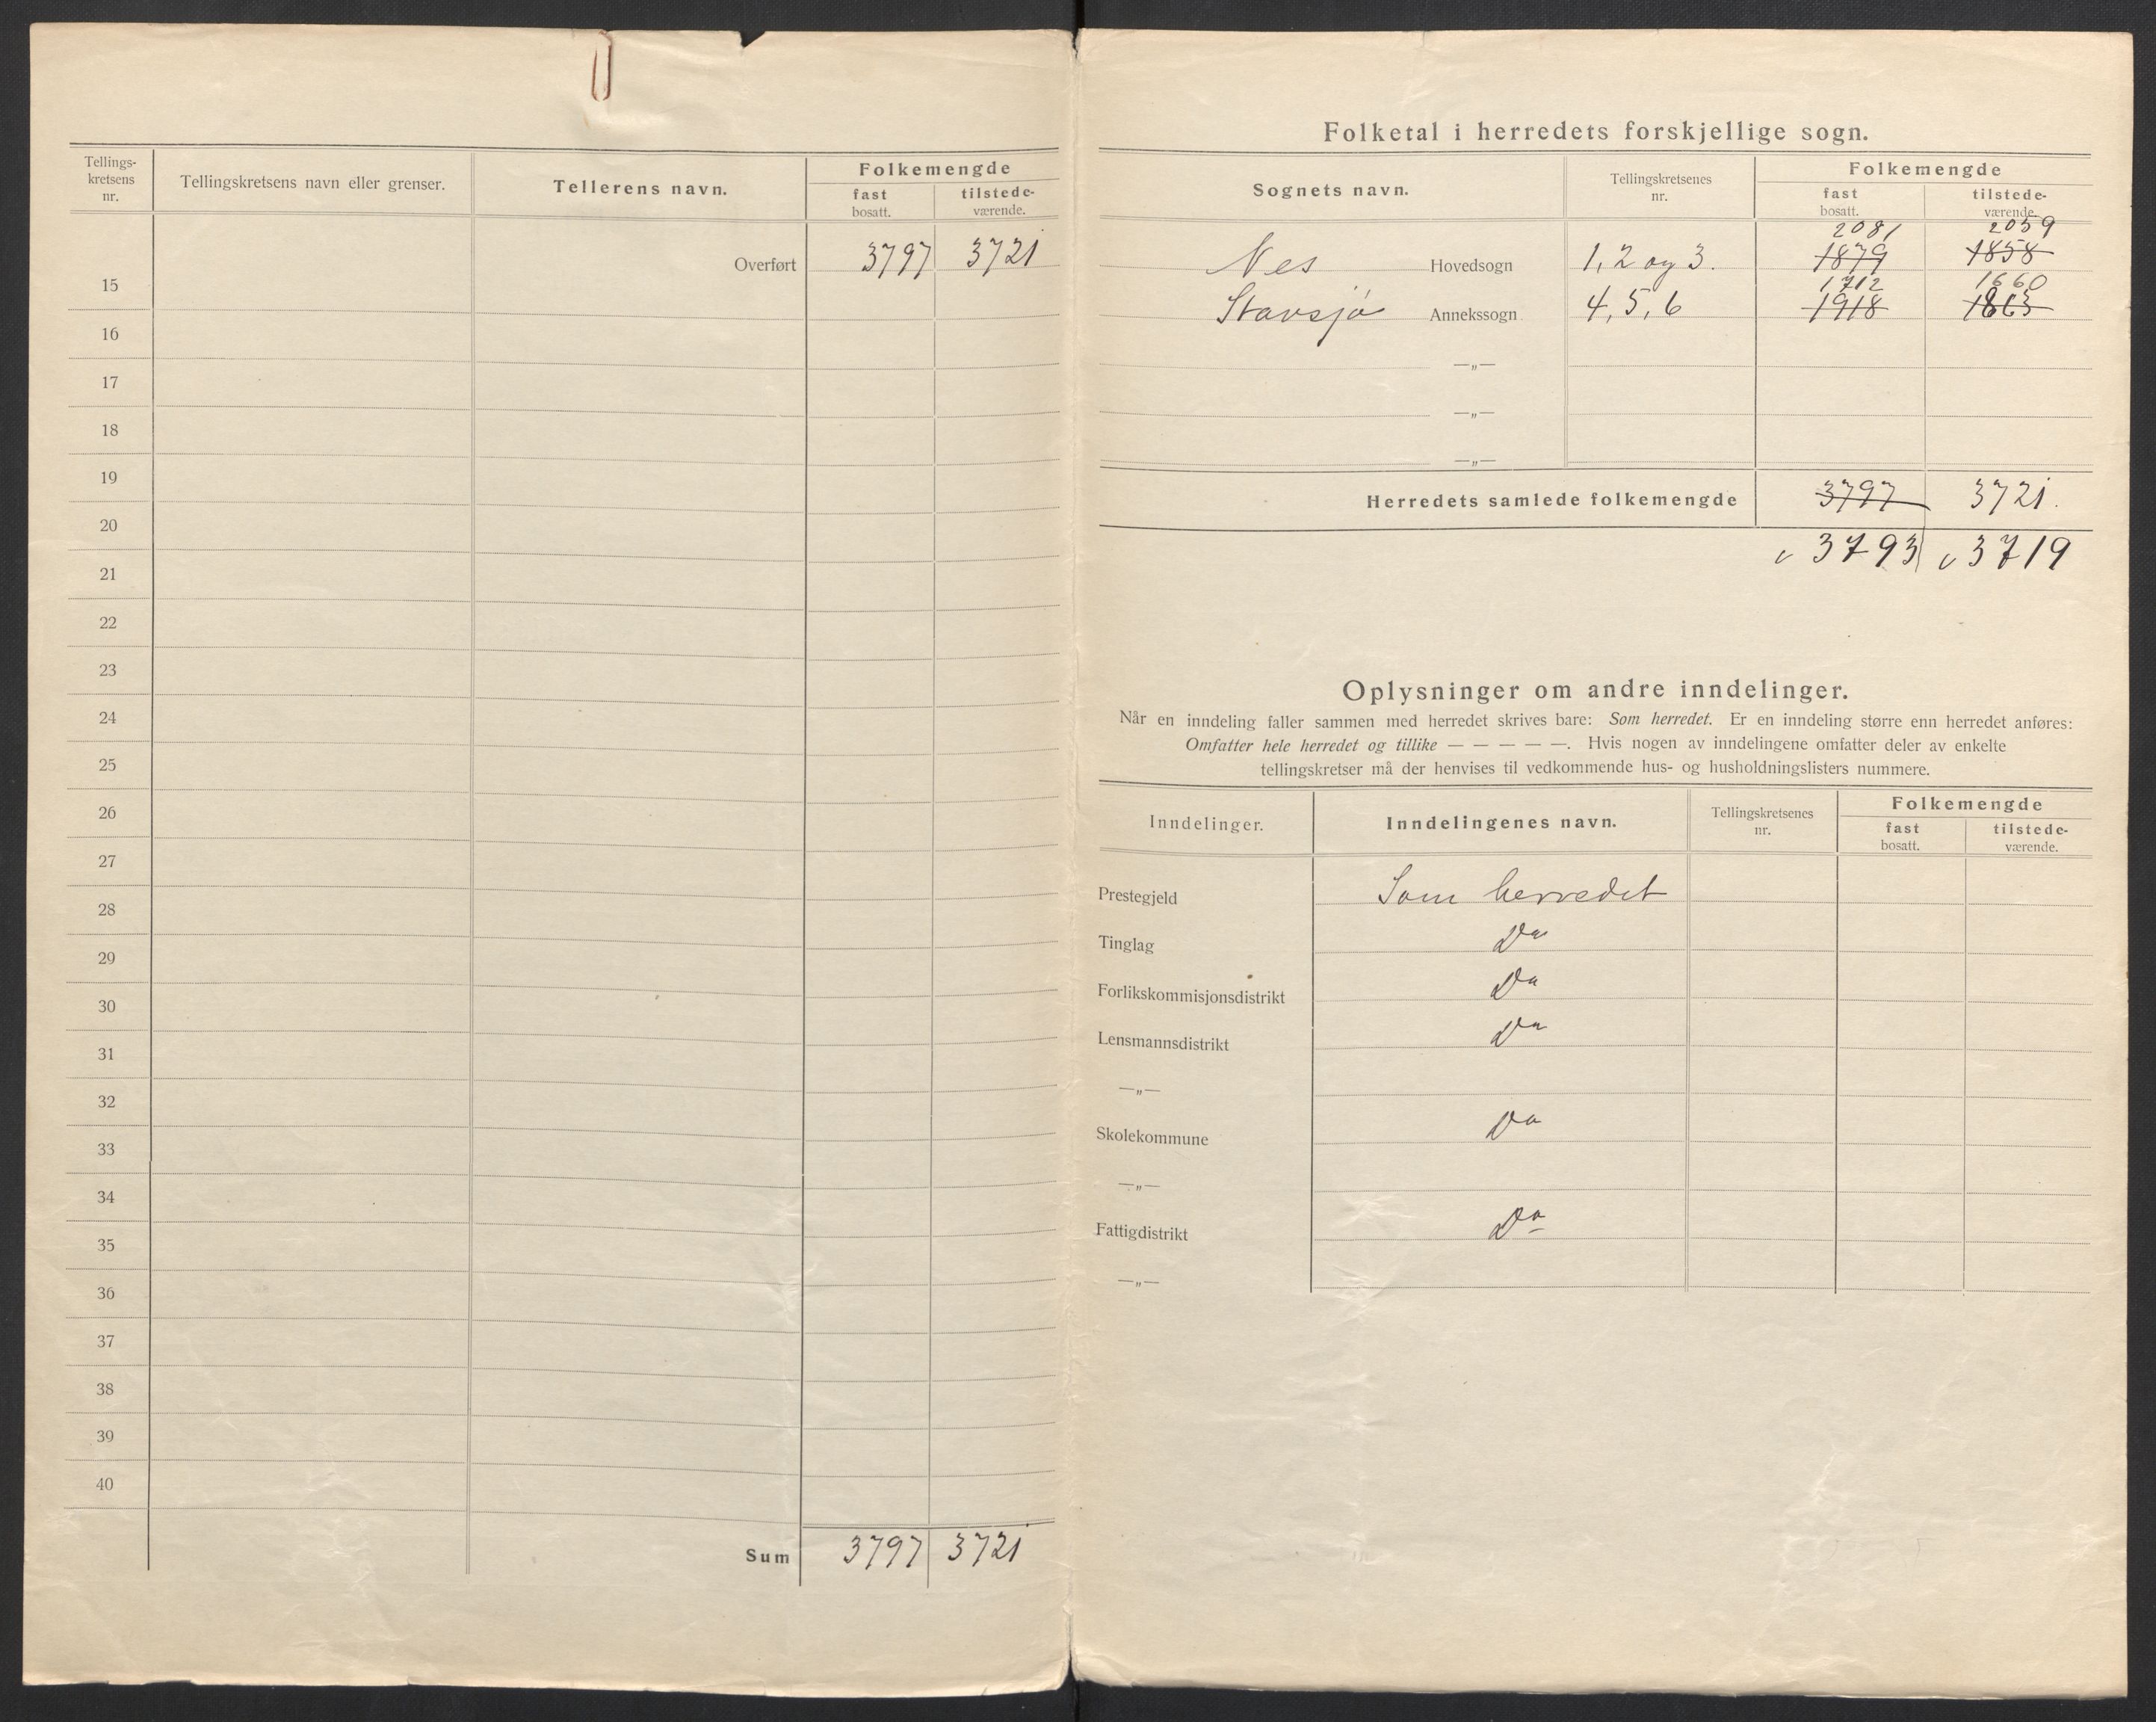 Tellings-
kretsens
nr.
Tellingskretsens navn eller grenser.
Tellerens navn.
Folkemengde
fast
bosatt.
tilstede-
værende.
Overført 3797 3721
15
16
17
18
19
20
21
22
23
24
25
26
27
28
29
30
31
32
33
34
35
36
37
38
39
40
Sum 3797 3721
Folketal i herredets forskjellige sogn.
Sognets navn.
Tellingskretsenes
nr.
Folkemengde
fast
bosatt.
tilstede-
værende.
2081 2059
Nes Hovedsogn 1, 2 og 3. 1879 1858
1712 1660
Stavsjø Annekssogn 4, 5, 6 1918 1863
—„—
—„—
—„—
Herredets samlede folkemengde 3797 3721.
3793 3719
Oplysninger om andre inndelinger.
Når en inndeling faller sammen med herredet skrives bare: Som herredet. Er en inndeling større enn herredet anføres:
Omfatter hele herredet og tillike — — — — —. Hvis nogen av inndelingene omfatter deler av enkelte
tellingskretser må der henvises til vedkommende hus- og husholdningslisters nummere.
Inndelinger.
Inndelingenes navn.
Tellingskretsenes
nr.
Folkemengde
fast
bosatt.
tilstede-
værende.
Prestegjeld Som herredet
Tinglag Do
Forlikskommisjonsdistrikt Do
Lensmannsdistrikt Do
—„—
Skolekommune Do
—„—
Fattigdistrikt Do
—„—